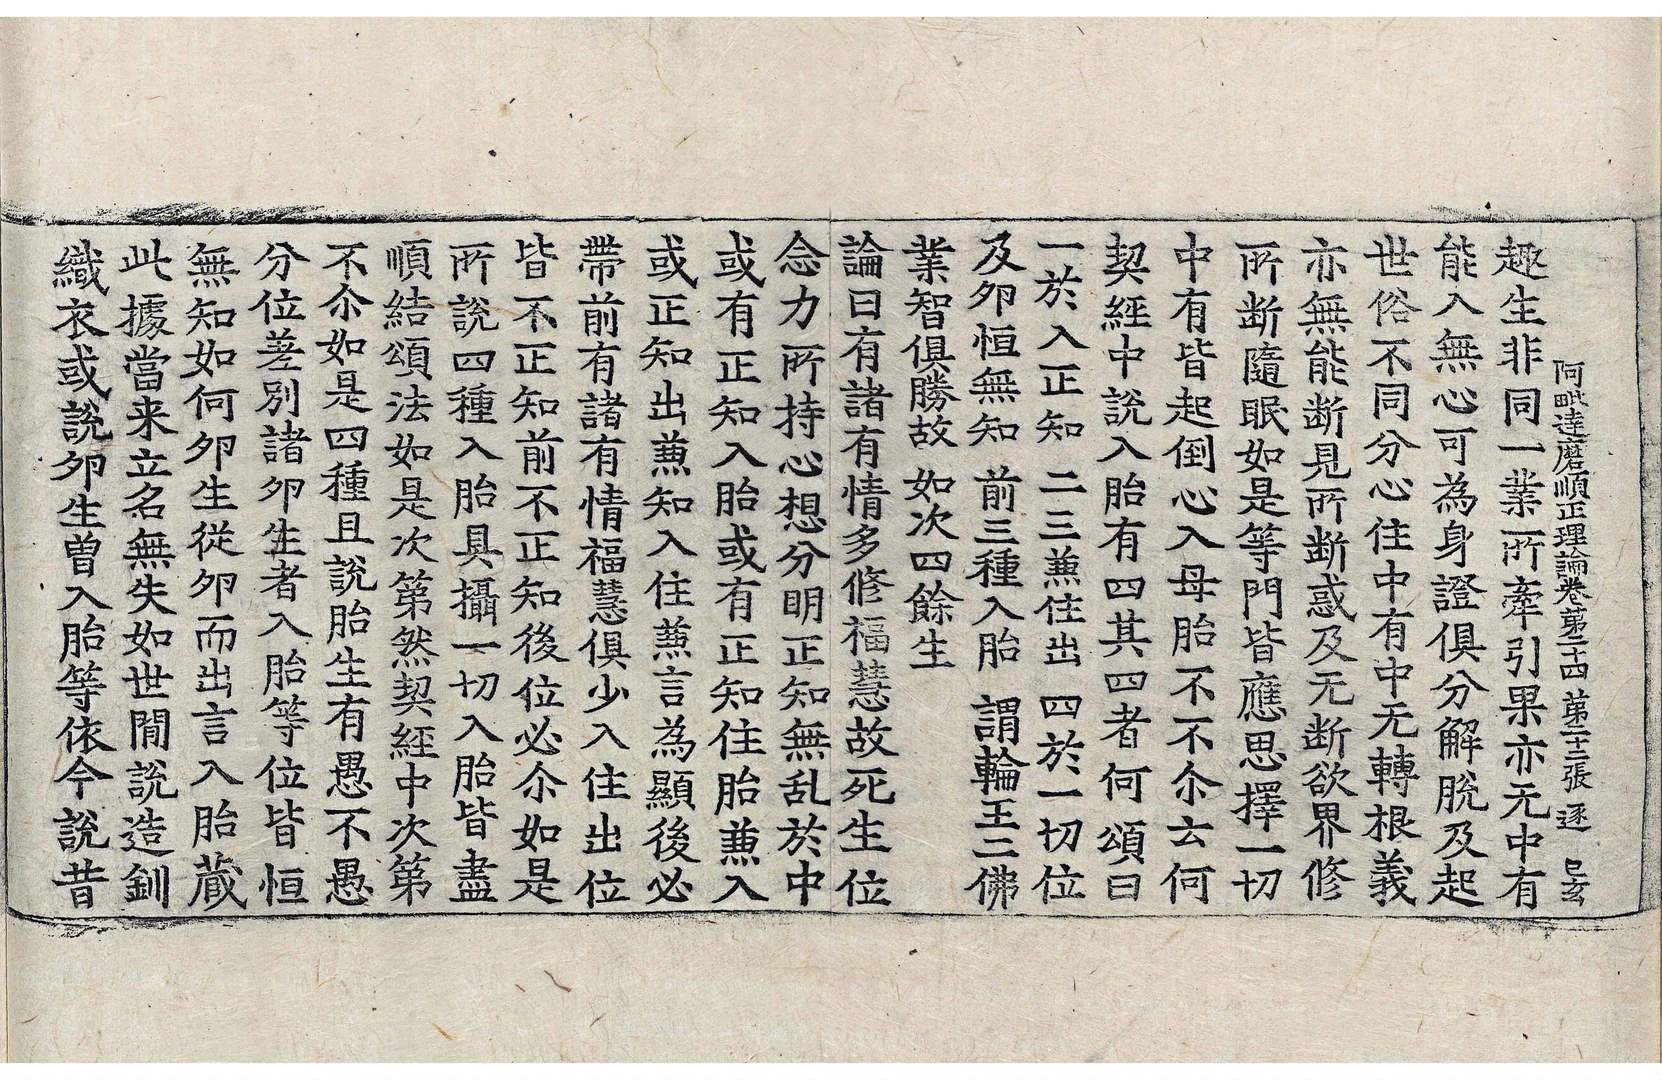 阿毗達磨順正理論卷第二十四 第二十二張 逐 已玄
趣生非同一業所牽引果亦无中有
能入無心可為身證俱分解脫及起
世俗不同分心住中有中无轉根義
亦無能断見所断惑及无断欲界修
所断隨眠如是等門皆應思擇一切
中有皆起倒心入母胎不不尒云何
契經中說入胎有四其四者何頌曰
一於入正知 二三蕉住出 四於一切位
及夘恒無知 前三種入胎 謂輪王二佛
業智俱勝故 如次四餘生
論曰有諸有情多修福慧故死生位
念力所持心想分明正知無乱於中
或有正知入胎或有正知住胎蕉入
或正知出蕉知入住蕉言為顯後必
帶前有諸有情福慧俱少入住出位
皆不正知前不正知後位必尒如是
所說四種入胎具攝一切入胎皆盡
順結頌法如是次第然契經中次第
不尒如是四種且說胎生有愚不愚
分位差別諸夘生者入胎等位皆恒
無知如何夘生從夘而出言入胎藏
此據當来立名無失如世間說造釧
織衣或說夘生曽入胎等依今說昔